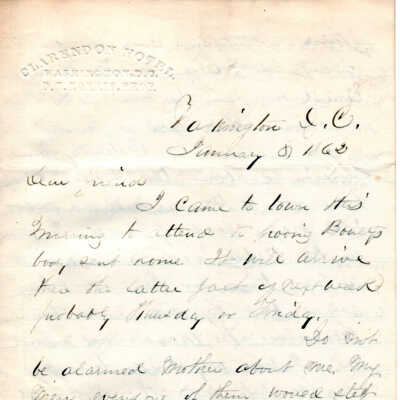 CLARENDON HOTEL,
WASHINGTON, D.C.
PROP.
Washington D.C.
January 8, 1863
Dear friend
I came to town this
Morning to attend to poor Boney's
body, sent home. It will arrive
the latter part of next week
probably Thursday or Friday.
Do not
be alarmed Mother about me. My
Men every one of them would step